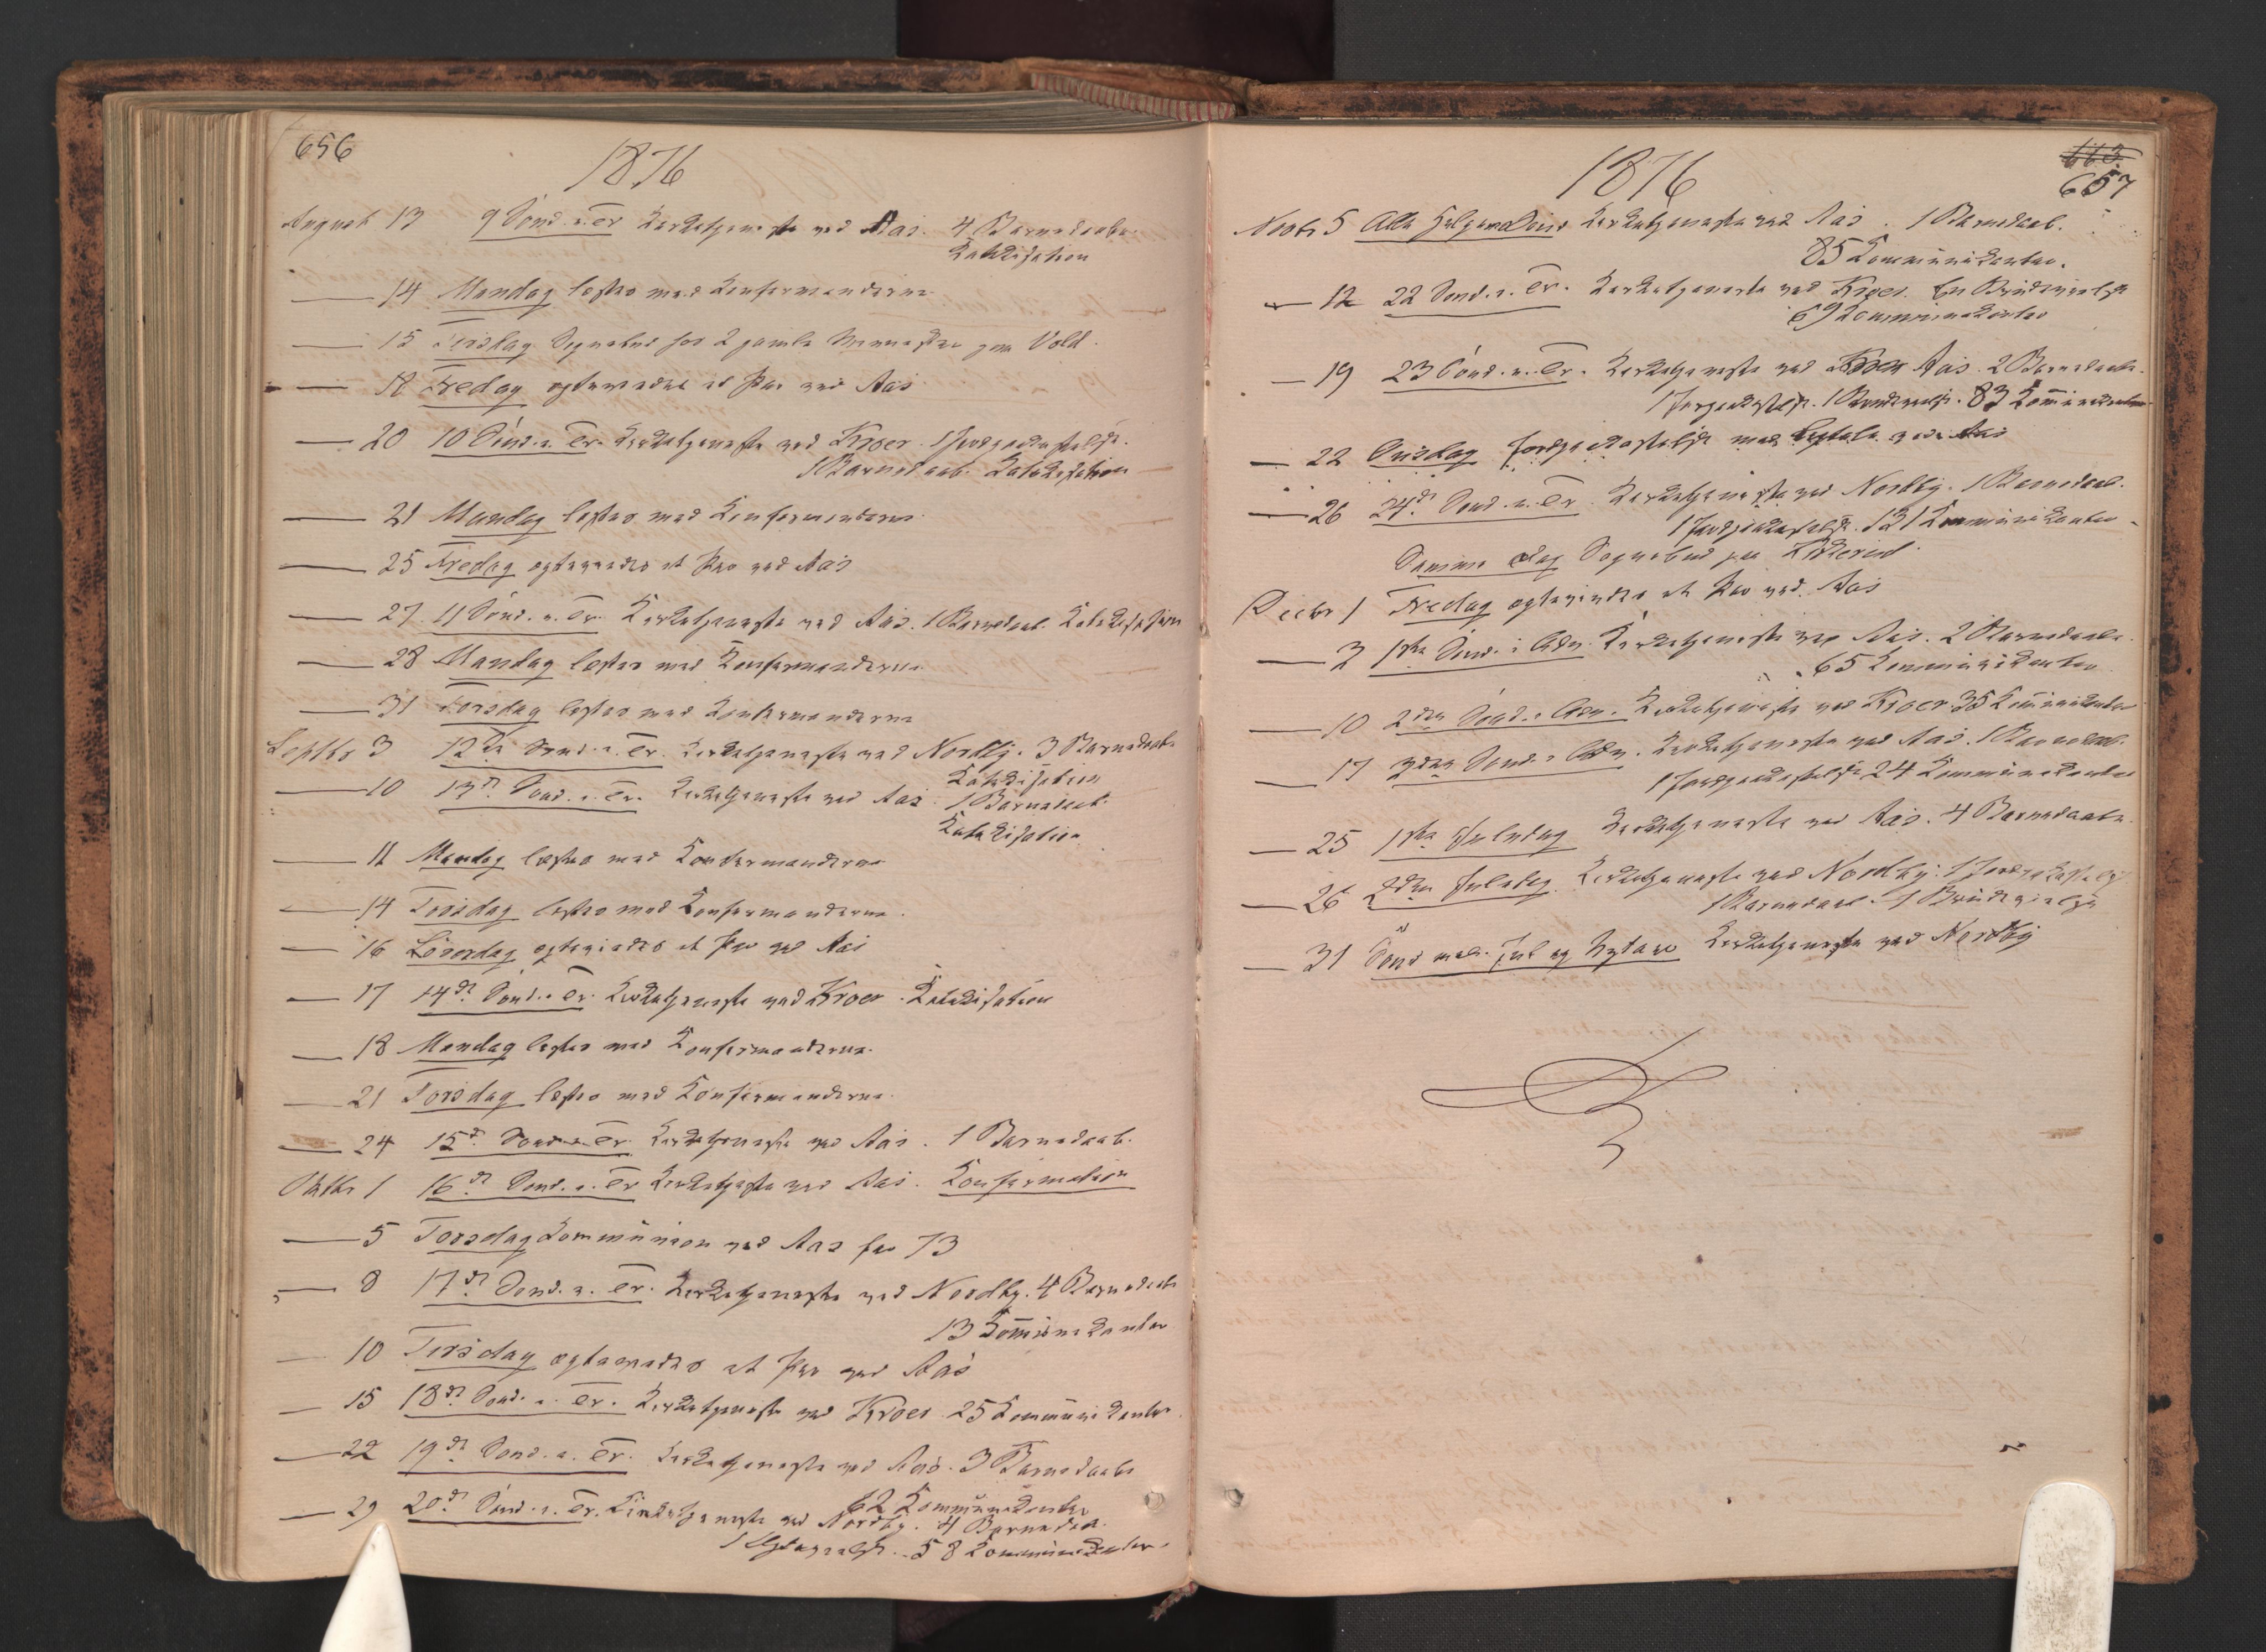 656
1876
August 13 9 Sønd. e. Tr. Kirketjeneste ved Aas. 4 Barnedaabe.
Katekisation
— 14 Mandag læstes med Konfirmanderne
— 15 Tirsdag Sognebud for 2 gamle Mennesker paa Vold.
— 18 Fredag ægteviedes et Par ved Aas
— 20 10 Sønd. e. Tr. Kirketjeneste ved Kroer. 1 Jordpaakastelse.
1 Barnedaab. Katekisation
— 21 Mandag læstes med Konfirmanderne.
— 25 Fredag ægteviedes et Par ved Aas
— 27 11 Sønd. e. Tr. Kirketjeneste ved Aas. 1 Barnedaab. Katekisation
— 28 Mandag læstes med Konfirmanderne.
— 31 Torsdag læstes med Konfirmanderne
Septbr 3 12te Sønd. e. Tr. Kirketjeneste ved Nordby. 3 Barnedaabe
Katekisation
— 10 13de Sønd. e. Tr. Kirketjeneste ved Aas. 1 Barnedaab.
Katekisation
— 11 Mandag læstes med Konfirmanderne
— 14 Torsdag læstes med Konfirmanderne.
— 16 Løverdag ægteviedes et Par ved Aas
— 17 14de Sønd. e. Tr. Kirketjeneste ved Kroer. Katekisation
— 18 Mandag læstes med Konfirmanderne.
— 21 Torsdag læstes med Konfirmanderne.
— 24 15de Sønd. e. Tr. Kirketjeneste ved Aas. 1 Barnedaab.
Oktbr 1 16de Sønd. e. Tr Kirketjeste ved Aas. Konfirmation
— 5 Torsdag Kommunion ved Aas for 73
— 8 17de Sønd. e. Tr. Kirketjeneste ved Nordby. 4 Barnedaabe
13 Kommunikanter
— 10 Tirsdag ægteviedes et Par ved Aas
— 15 18de Sønd. e. Tr. Kirketjeneste ved Kroer 25 Kommunikanter.
— 22 19de Sønd. e. Tr. Kirketjeneste ved Aas. 3 Barnedaabe
62 Kommunikanter
— 29 20de Sønd. e. Tr. Kirketjeneste ved Nordby. 4 Barnedaab.
1 58 Kommunikanter.
663
657
1876
Novbr 5 Alle Helgens Kirketjeneste ved Aas. 1 Barnedaab.
85 Kommunikanter.
— 12 22 Sønd. e. Tr. Kirketjeneste ved Kroer. En Brudevielse
69 Kommunikanter
— 19 23 Sønd. e. Tr. Kirketjeneste ved Kroer Aas. 2 Barnedaabe.
1 Jorpaakastelse. 1 Brudevielse. 83 Kommunikanter
— 22 Onsdag Jordpaakastelse med Ligtale ved Aas
— 26 24de Sønd. e. Tr. Kirketjeneste ved Nordby. 1 Barnedaab.
1 Jordpaakastelse. 131 Kommunikanter.
Samme Dag Sognebud paa
Decbr 1 Fredag ægteviedes et Par ved Aas
— 3 1ste Sønd. i Adv. Kirketjeneste ved Aas. 2 Barnedaabe.
65 Kommunikanter
— 10 2den Sønd. i Adv. Kirketjeneste ved Kroer 35 Kommunikanter
— 17 3die Sønd. i Adv. Kirketjeneste ved Aas. 1 Barnedaab.
1 Jordpaakastelse 24 Kommunikanter
— 25 1ste Juledag Kirketjeneste ved Aas. 4 Barnedaabe.
— 26 2den Juledag. Kirketjeneste ved Nordby. 1 Jordpaakastelse
1 Barnedaab. 1 Brudevielse
— 31 Sønd. mel. Jul og Nytaar Kirketjeneste ved Nordby